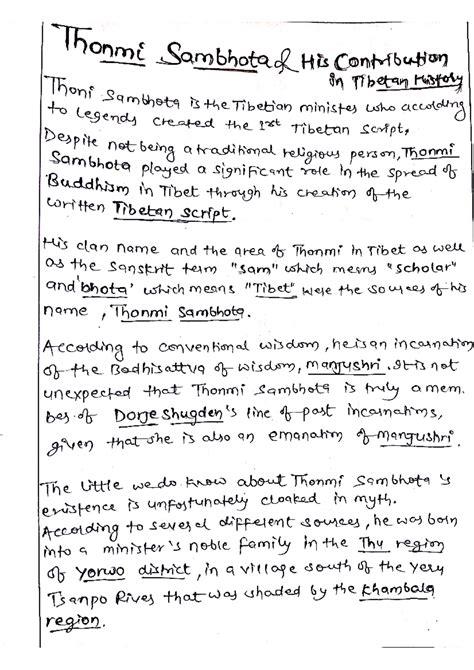 Thonmi Sambhota & His Contribution
in Tibetan History
Thoni Sambhota is the Tibetian minister who according
to legends created the 1st Tibetan script,
Despite not being a traditional religious person, Thonmi
Sambhota played a significant role in the spread of
Buddhism in Tibet through his creation of the
written Tibetan script.
His clan name and the area of Thonmi in Tibet as well
as the Sanskrit term "Sam" which means "scholar"
and 'bhota' which means "Tibet" were the sources of his
name, Thonmi Sambhota.
According to conventional wisdom, he is an incarnation
of the Bodhisattva of wisdom, Manjushri. It is not
unexpected that Thonmi Sambhota is truly a mem
ber of Dorje Shugden's line of past incarnations,
given that she is also an emanation of Manjushri.
The little we do know about Thonmi Sambhota's
existence is unfortunately cloaked in myth.
According to several different sources, he was born
into a minister's noble family in the Thu region
of Yorwo district, in a village south of the Yery
Tsanpo River that was shaded by the Khambala
region.